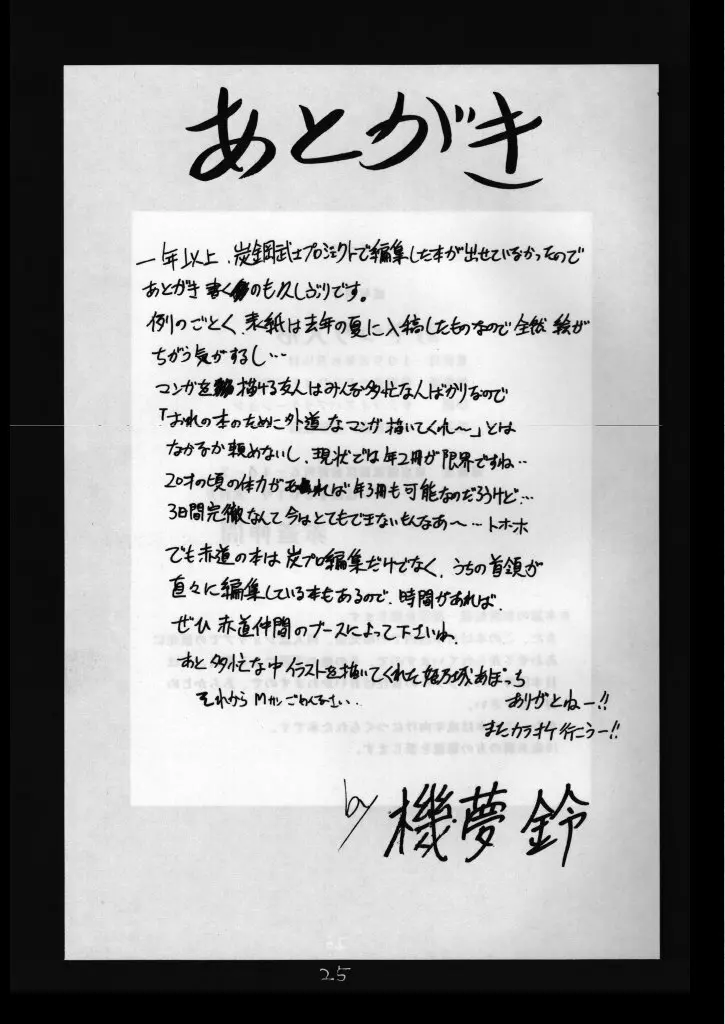 あとがき
一年以上、炭鋼武士プロジェクトで編集した本が出せていなかったので
あとがき書くのも久しぶりです。
例のごとく、表紙は去年の夏に入稿したものなので全然絵が
ちがう気がするし…
マンガを描ける友人はみんな多忙な人ばかりなので
「おれの本のために外道なマンガ描いてくれ〜」とは
なかなか頼めないし、現状では年2冊が限界ですね…
20才の頃の体力があれば年3冊も可能なのだろうけど…
3日間完徹なんて今はとてもできないもんなあ〜…トホホ
でも赤道の本は炭プロ編集だけでなく、うちの首領が
直々に編集している本もあるので、時間があれば、
ぜひ赤道仲間のブースによって下さいね。
あと多忙な中イラストを描いてくれた姫乃城あぽっち
ありがとねー!!
それからMカンごめんなさい。
またカラオケ行こうー!!
by 機夢鈴
25